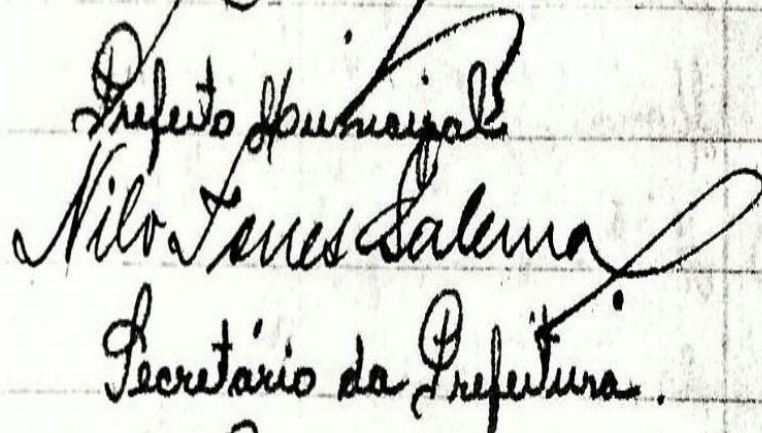 Prefeito Municipal
Nilo Torres Salerma
Secretário da Prefeitura.